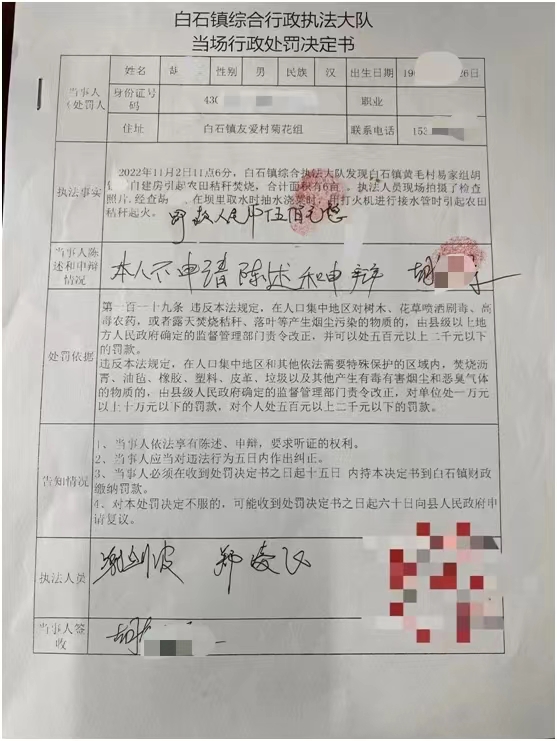 白石镇综合行政执法大队
当场行政处罚决定书
当事人（处罚人
姓名 胡 性别 男 民族 汉 出生日期 19 26日
身份证号码 430 职业
住址 白石镇友爱村菊花组 联系电话 153
执法事实
2022年11月2日11点6分，白石镇综合执法大队发现白石镇黄毛村易家组胡
自建房引起农田秸秆焚烧，合计面积有6亩。执法人员现场拍摄了检查
照片，经查胡 、在坝里取水时抽水浇菜时，用打火机进行接水管时引起农田
秸秆起火。
罚款人民币伍佰元整
当事人陈述和申辩情况
本人不申请陈述和申辩 胡
处罚依据
第一百一十九条 违反本法规定，在人口集中地区对树木、花草喷洒剧毒、高
毒农药，或者露天焚烧秸秆、落叶等产生烟尘污染的物质的，由县级以上地
方人民政府确定的监督管理部门责令改正，并可以处五百元以上二千元以下
的罚款。
违反本法规定，在人口集中地区和其他依法需要特殊保护的区域内，焚烧沥
青、油毡、橡胶、塑料、皮革、垃圾以及其他产生有毒有害烟尘和恶臭气体
的物质的，由县级人民政府确定的监督管理部门责令改正，对单位处一万元
以上十万元以下的罚款，对个人处五百元以上二千元以下的罚款。
告知情况
1、当事人依法享有陈述、申辩，要求听证的权利。
2、当事人应当对违法行为五日内作出纠正。
3、当事人必须在收到处罚决定书之日起十五日 内持本决定书到白石镇财政
缴纳罚款。
4、对本处罚决定不服的，可能收到处罚决定书之日起六十日向县人民政府申
请复议。
执法人员
当事人签收
胡